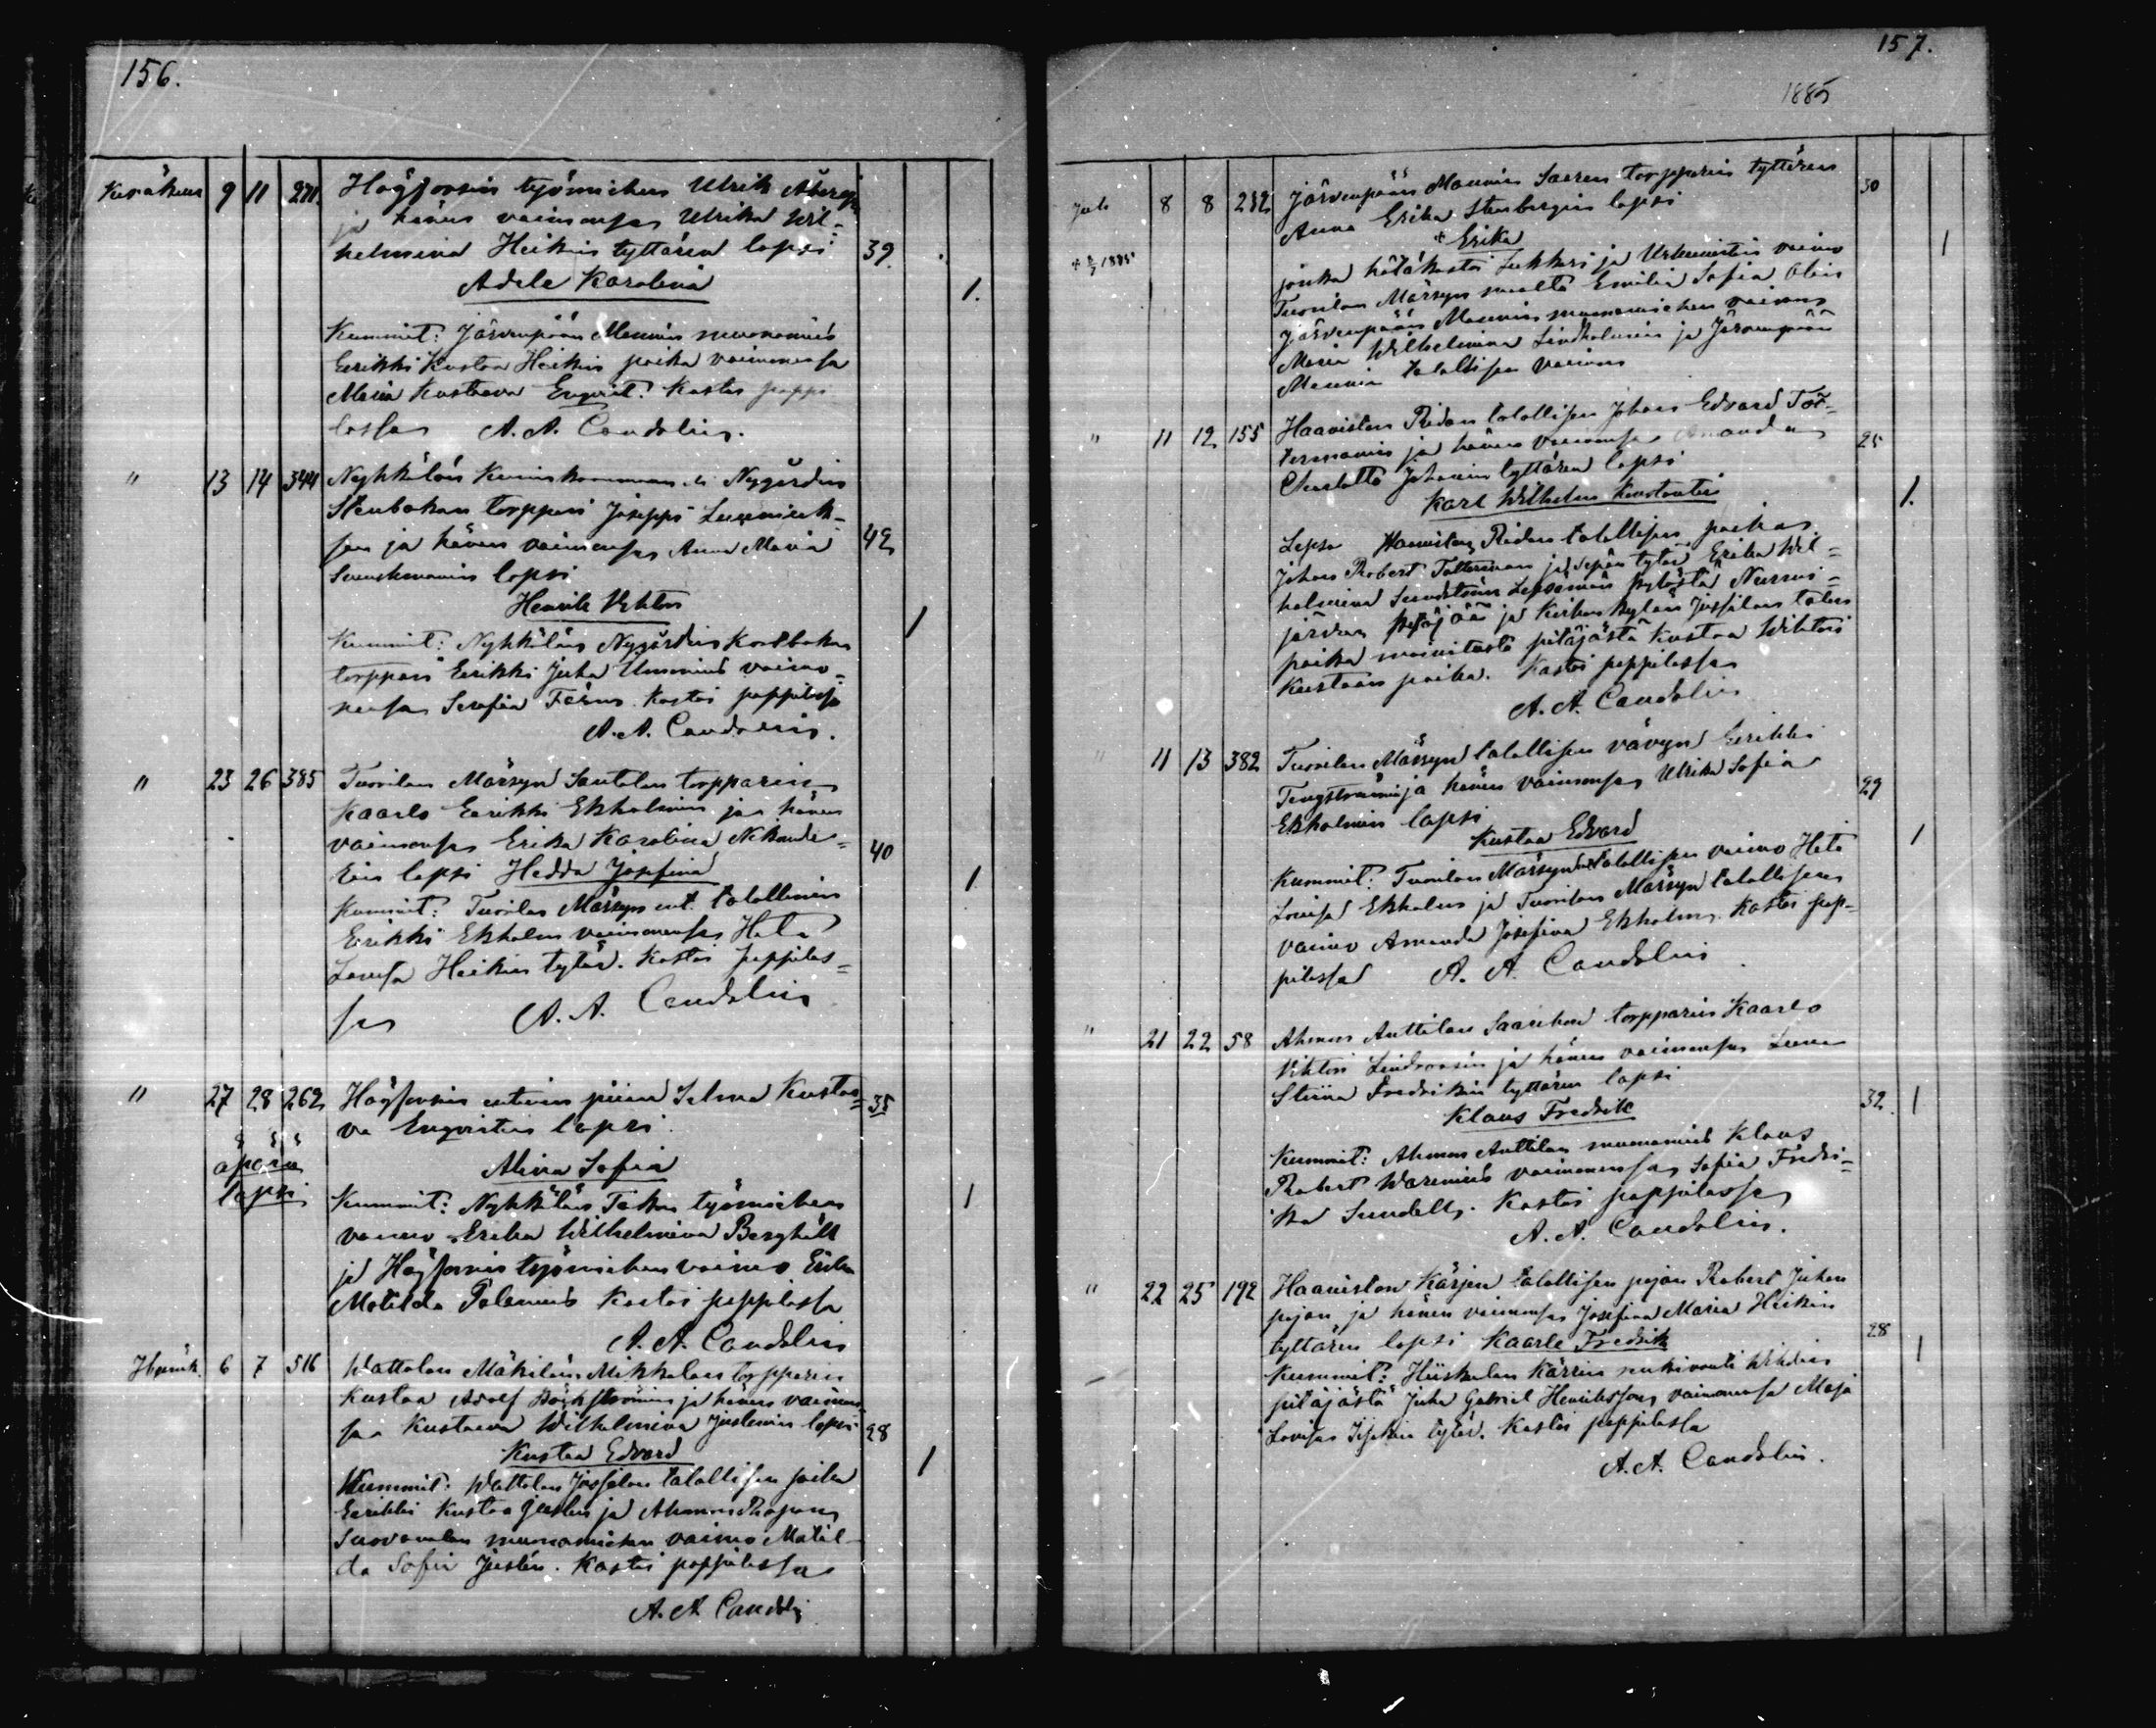 156.
Kesäkuu 9 11 271. Högforsin työmiehen Ulrik
ja hänen vaimonsa Ulrika Wil-
helmina Heikin tyttären lapsi 39.
Adele Karolina 1.
Kummit: Järvenpään Maunin muonamies
Eerikki Kustaa Heikin poika vaimonensa
Maria Kustaava Enqvist. Kastoi pappi
lassa A. A. Candolin.
" 13 14 344 Nyhkälän Nygårdin
Stenbakan torppari Joseppi
ja hänen vaimonsa Anna Maria 42
lapsi
Henrik Viktor 1
Kummit: Nyhkälän Nygårdin Kortbakan
torppari Eerikki Juha vaimo-
nensa Serafia Kastoi pappilassa
A. A. Candolin.
" 23 26 385 Tuorilan Märsyn Santalan torpparin
Kaarlo Eerikki Ekholmin ja hänen
vaimonsa Erika Karolina Nikande- 40
rin lapsi Hedda Josefina 1
Kummit: Tuorilan Märsyn ent. talollinen
Eerikki Ekholm vaimonensa Heta
Lovisa Heikin tytär. Kastoi pappilas-
sa A. A. Candolin
" 27 28 262 Högforsin entinen piian Selma Kustaa- 35
va Enqvistin lapsi.
äpärä
lapsi
Alina Sofia
Kummit: Nyhkälän työmiehen 1
vaimo Erika Wilhelmina Berghäll
ja Högforsin työmiehen vaimo Erika
Matilda Palenius Kastoi pappilassa
A. A. Candolin
6 7 516 Wattolan Mäkilän Mikkolan torpparin
Kustaa Adolf ja hänen vaimon-
sa Kustaava Wilhelmina Juslenin lapsi 28
Kustaa Edvard 1
Kummit: Wattolan Jussilan talollisen poika
Eerikki Kustaa Juslen ja Ahmon
muonamiehen vaimo Matil-
da Sofia Juslén. Kastoi pappilassa
A. A. Candolin
157.
1885
8 8 232 Järvenpään Maunin Saaren torpparin tyttären 30
Anna Erika Stenbergin lapsi
+ Erika 1
jonka hätäkastoi Lukkari ja Urkunistin vaimo
Tuorilan Märsyn maalta Emilia Sofia
Järvenpään Maunin muonamiehen vaimo
Maria Wilhelmina Lindholmin ja Järvenpään
Maunin talollisen vaimo
" 11 12 155 Haaviston Ridan talollisen Johan Edvard Töt-
termanin ja hänen vaimonsa Amanda 25
Charlotta Johanin tyttären lapsi
Karl Wilhelm Konstantin 1.
Haaviston Ridan talollisen poika
Johan Robert Tötterman ja Sepän tytär Erika Wil-
helmina Sundström Lepsämän kylästä Nurmi-
järven pitäjää ja Kirkon kylän Jussilan talon
poika mainitusta pitäjästä Kustaa Wiktori
Kustaan poika. Kastoi pappilassa
A. A. Candolin
" 11 13 382 Tuorilan Märsyn talollisen vävyn Eerikki
Tengströmin ja hänen vaimonsa Ulrika Sofia 29
Ekholmin lapsi
Kustaa Edvard 1
Kummit: Tuorilan Märsyn talollisen vaimo Heta
Lovisa Ekholm ja Tuorilan Märsyn talollisen
vaimo Amanda Josefina Ekholm. Kastoi pap-
pilassa A. A. Candolin
" 21 22 58 Ahmon Anttilan torpparin Kaarlo
Viktori Lindroosin ja hänen vaimonsa Leena
Stiina Fredrikin tyttären lapsi
Klaus Fredrik 32 1
Kummit: Ahmon Anttilan muonamies Klaus
Robert Warenius vaimonensa Sofia Fredri-
ka Sundell. Kastoi pappilassa
A. A. Candolin.
" 22 25 192 Haaviston Kärjen talollisen pojan Robert Juhan
pojan, ja hänen vaimonsa Josefina Maria Heikin
tyttären lapsi Kaarle Fredrik 28 1
Kummit: Hiiskulan Kärrin renkivouti Wihdin
pitäjästä Juha Gabriel Henriksson vaimonensa Maja
Lovisa tytär. Kastoi pappilassa
A. A. Candolin.